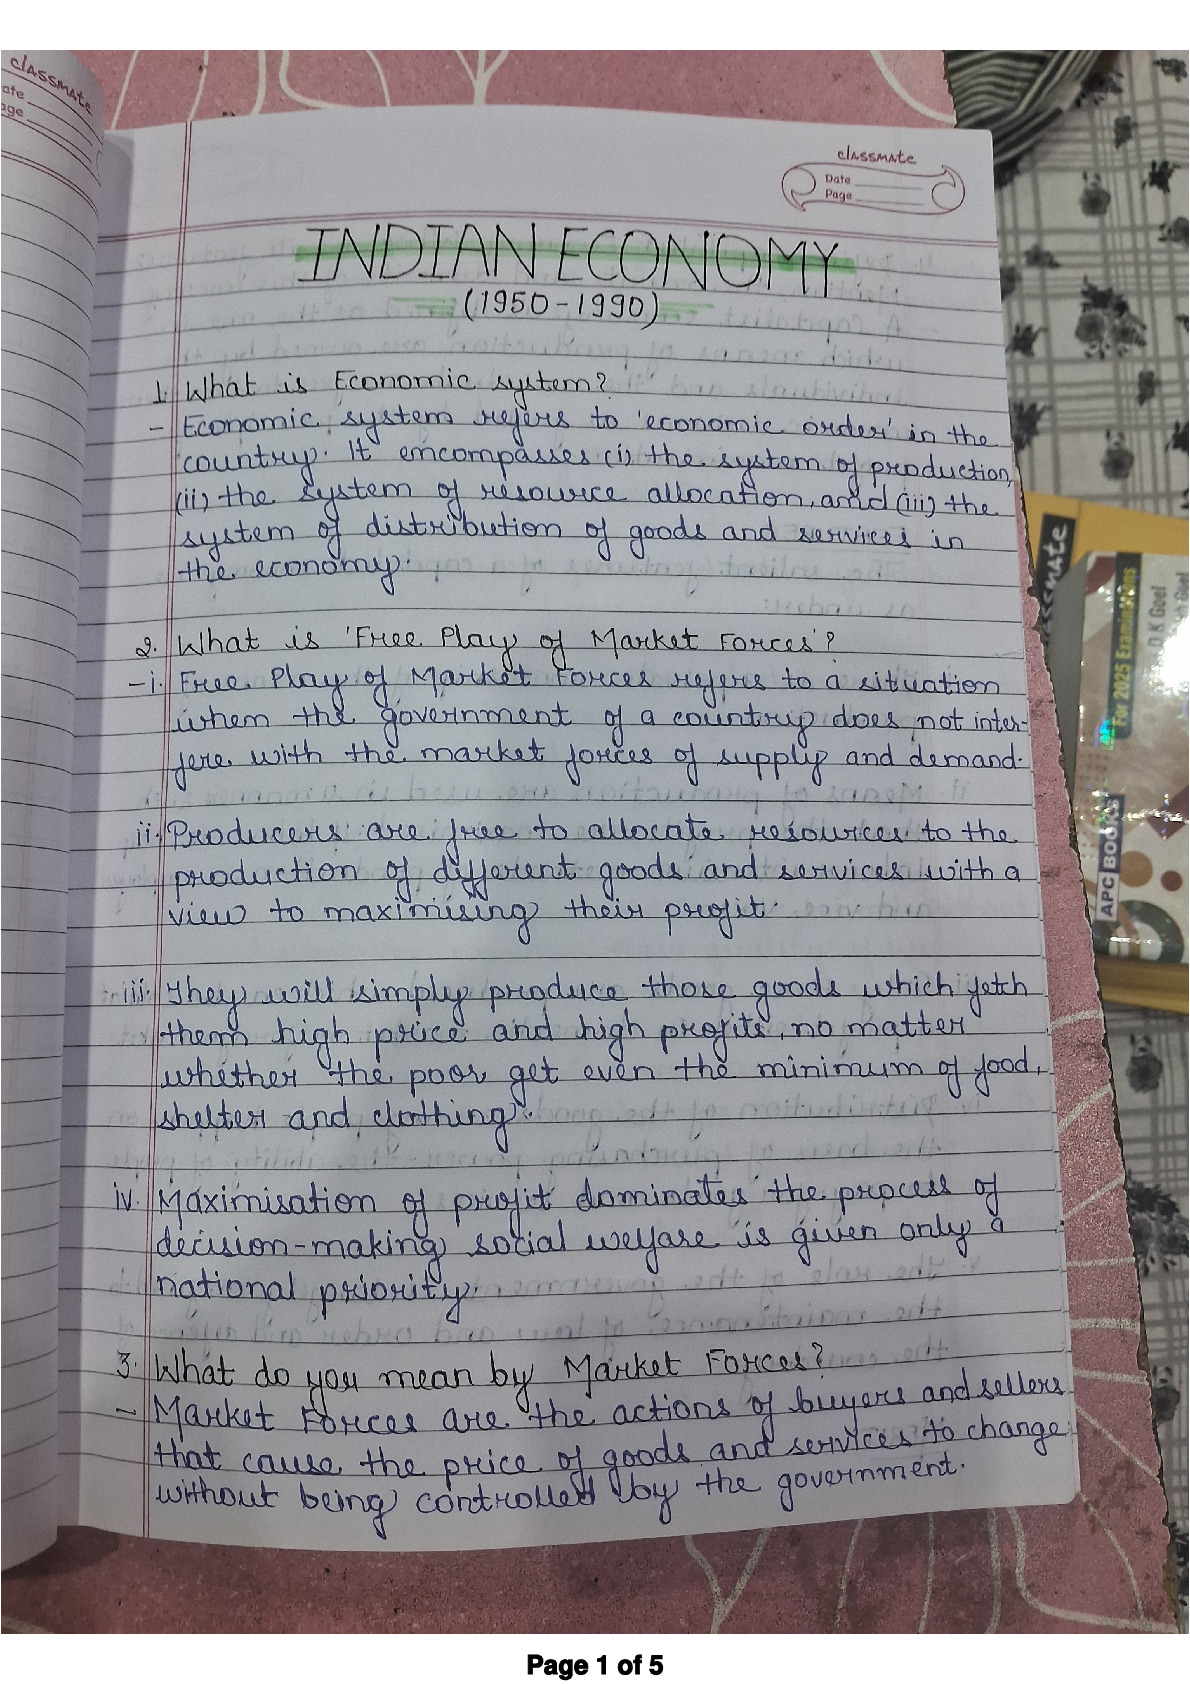 classmate
ate
age
classmate
Date
Page
INDIAN ECONOMY
(1950-1990)
1. What is Economic system?
- Economic system refers to 'economic order' in the
country. It encompasses (i) the system of production,
(ii) the system of resource allocation, and (iii) the
system of distribution of goods and services in
the economy.
2. What is 'Free Play of Market Forces'?
-i. Free Play of Market Forces refers to a situation
when the government of a country does not inter-
fere with the market forces of supply and demand.
ii. Producers are free to allocate resources to the
production of different goods and services with a
view to maximising their profit.
iii. They will simply produce those goods which fetch
them high price and high profits, no matter
whether the poor get even the minimum of food,
shelter and clothing.
iv. Maximisation of profit dominates the process of
decision-making social welfare is given only a
national priority.
3. What do you mean by Market Forces?
- Market Forces are the actions of buyers and sellers
that cause the price of goods and services to change
without being controlled by the government.
assmate
For 2025 Examinations
D K Goel
Goel
APC BOOKS
Page 1 of 5